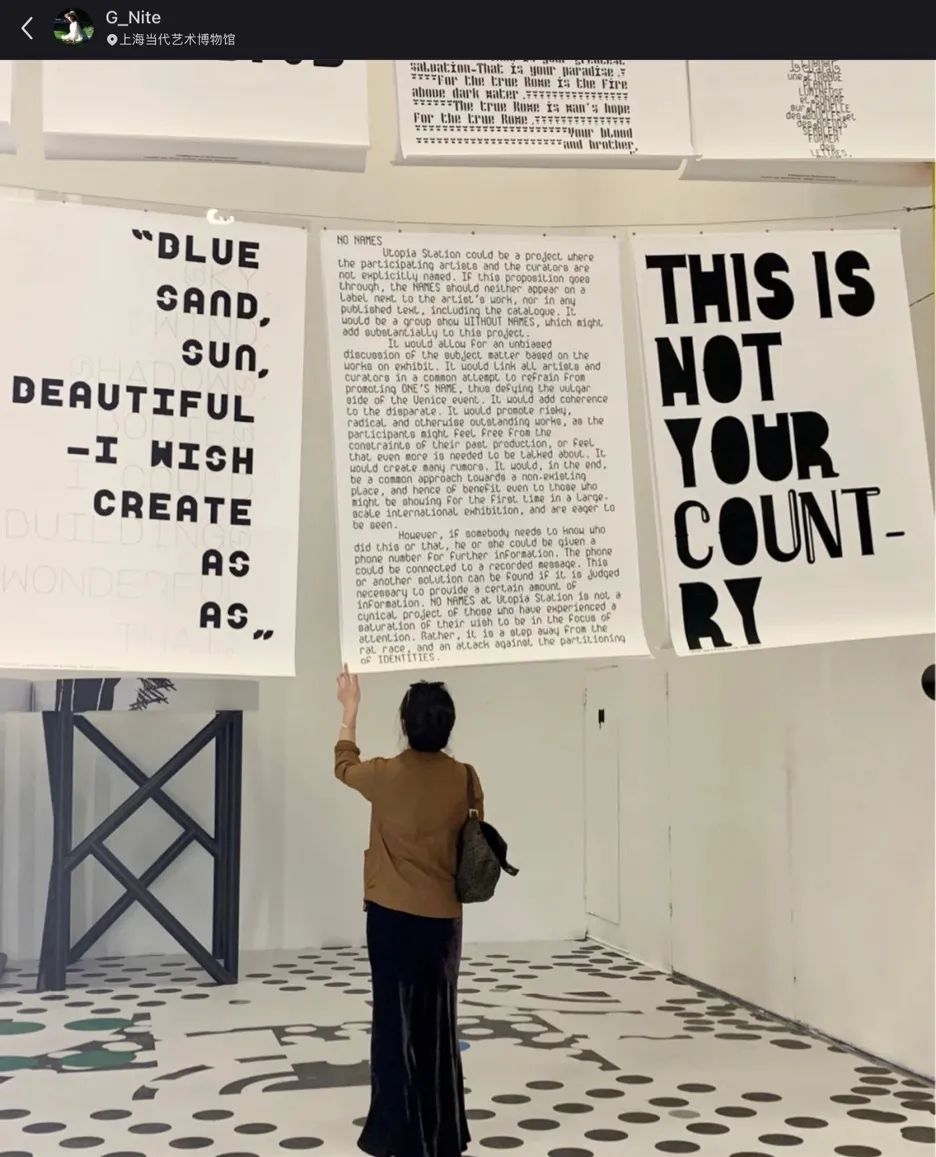 G_Nite
上海当代艺术博物馆
salvation-That is your paradise.
For the true Rome is the fire
above dark water.
The true Rome is man's hope
For the true Rome.
Your blood
and brother.
une ETRANGE
PLANTE
LUMINEUSE
et SONORE
sur LAQUELLE
des BOUCLES et
des NOEUDS
SEMBLENT
FORMER
des
LETTRES.
"BLUE
SAND,
SUN,
BEAUTIFUL
-I WISH
CREATE
AS
AS„
SHADOWS
BUILDINGS
WONDERFUL
THAN
NO NAMES
Utopia Station could be a project where
the participating artists and the curators are
not explicitly named. If this proposition goes
through, the NAMES should neither appear on a
label next to the artist's work, nor in any
published text, including the catalogue. It
would be a group show WITHOUT NAMES, which might
add substantially to this project.
It would allow for an unbiased
discussion of the subject matter based on the
works on exhibit. It would link all artists and
curators in a common attempt to refrain from
promoting ONE'S NAME, thus defying the vulgar
side of the Venice event. It would add coherence
to the disparate. It would promote risky,
radical and otherwise outstanding works, as the
participants might feel free from the
constraints of their past production, or feel
that even more is needed to be talked about. It
would create many rumors. It would, in the end,
be a common approach towards a non-existing
place, and hence of benefit even to those who
might be showing for the first time in a large-
scale international exhibition, and are eager to
be seen.
However, if somebody needs to know who
did this or that, he or she could be given a
phone number for further information. The phone
could be connected to a recorded message. This
or another solution can be found if it is judged
necessary to provide a certain amount of
information. NO NAMES at Utopia Station is not a
cynical project of those who have experienced a
saturation of their wish to be in the focus of
attention. Rather, it is a step away from the
rat race, and an attack against the partitioning
of IDENTITIES.
THIS IS
NOT
YOUR
COUNT-
RY